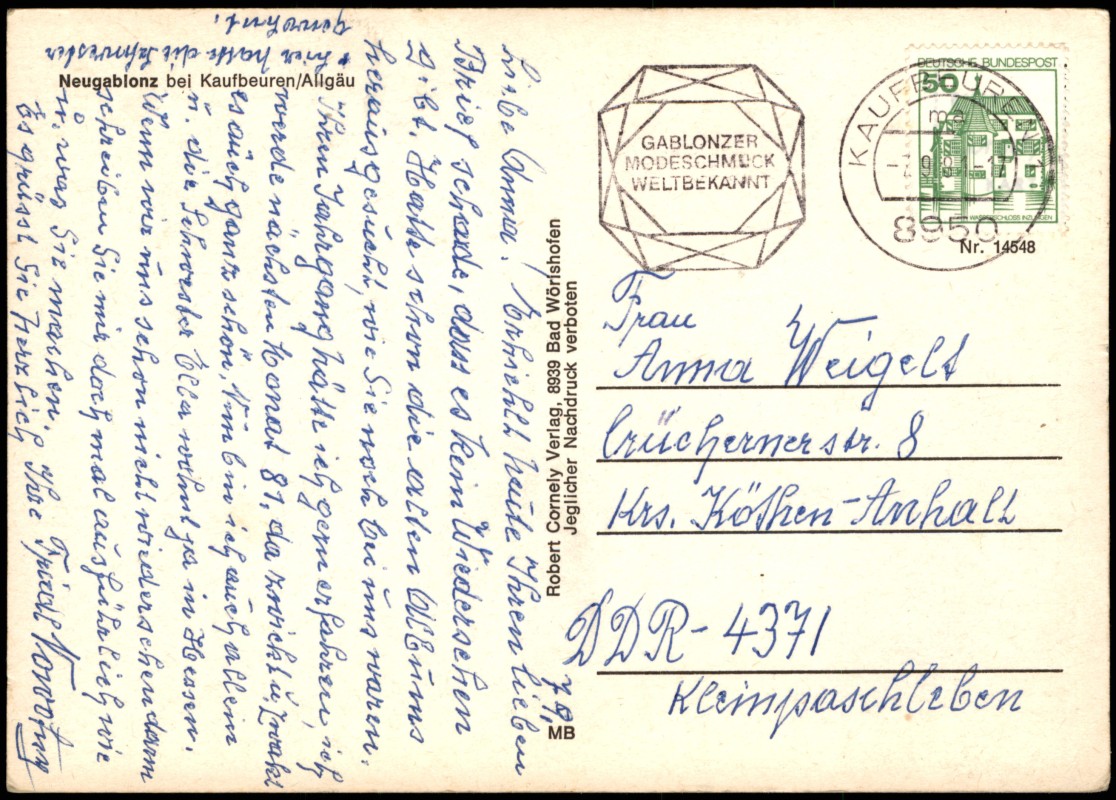 Neugablonz bei Kaufbeuren/Allgäu
Liebe Anna! Erhielt heute Ihren lieben
Brief schade, dass es kein Wiedersehen
gibt. Hatte schon die alten Albums
herausgesucht, wie Sie noch bei uns waren.
Ihren Jahrgang hätte ich gern erfahren, ich
werde nächsten Monat 81, da zwickt u. zwakt
es auch ganz schön. Nun bin ich auch allein
u. die Schwester Ella wohnt ja in Hessen.
Wenn wir uns schon nicht wiedersehen dann
schreiben Sie mir doch mal ausführlich wie
u. was Sie machen.
Es grüsst Sie herzlich Ihre Friedl
hier hatte die Schwester
gewohnt.
7/9
MB
Robert Cornely Verlag, 8939 Bad Wörishofen
Jeglicher Nachdruck verboten
GABLONZER
MODESCHMUCK
WELTBEKANNT
KAUFBEUREN
ma
-7.9.81-17
8950
DEUTSCHE BUNDESPOST
50
WASSERSCHLOSS INZLINGEN
Nr. 14548
Frau
Anna Weigelt
Crüchernerstr. 8
Krs. Köthen-Anhalt
DDR-4371
Kleinpaschleben